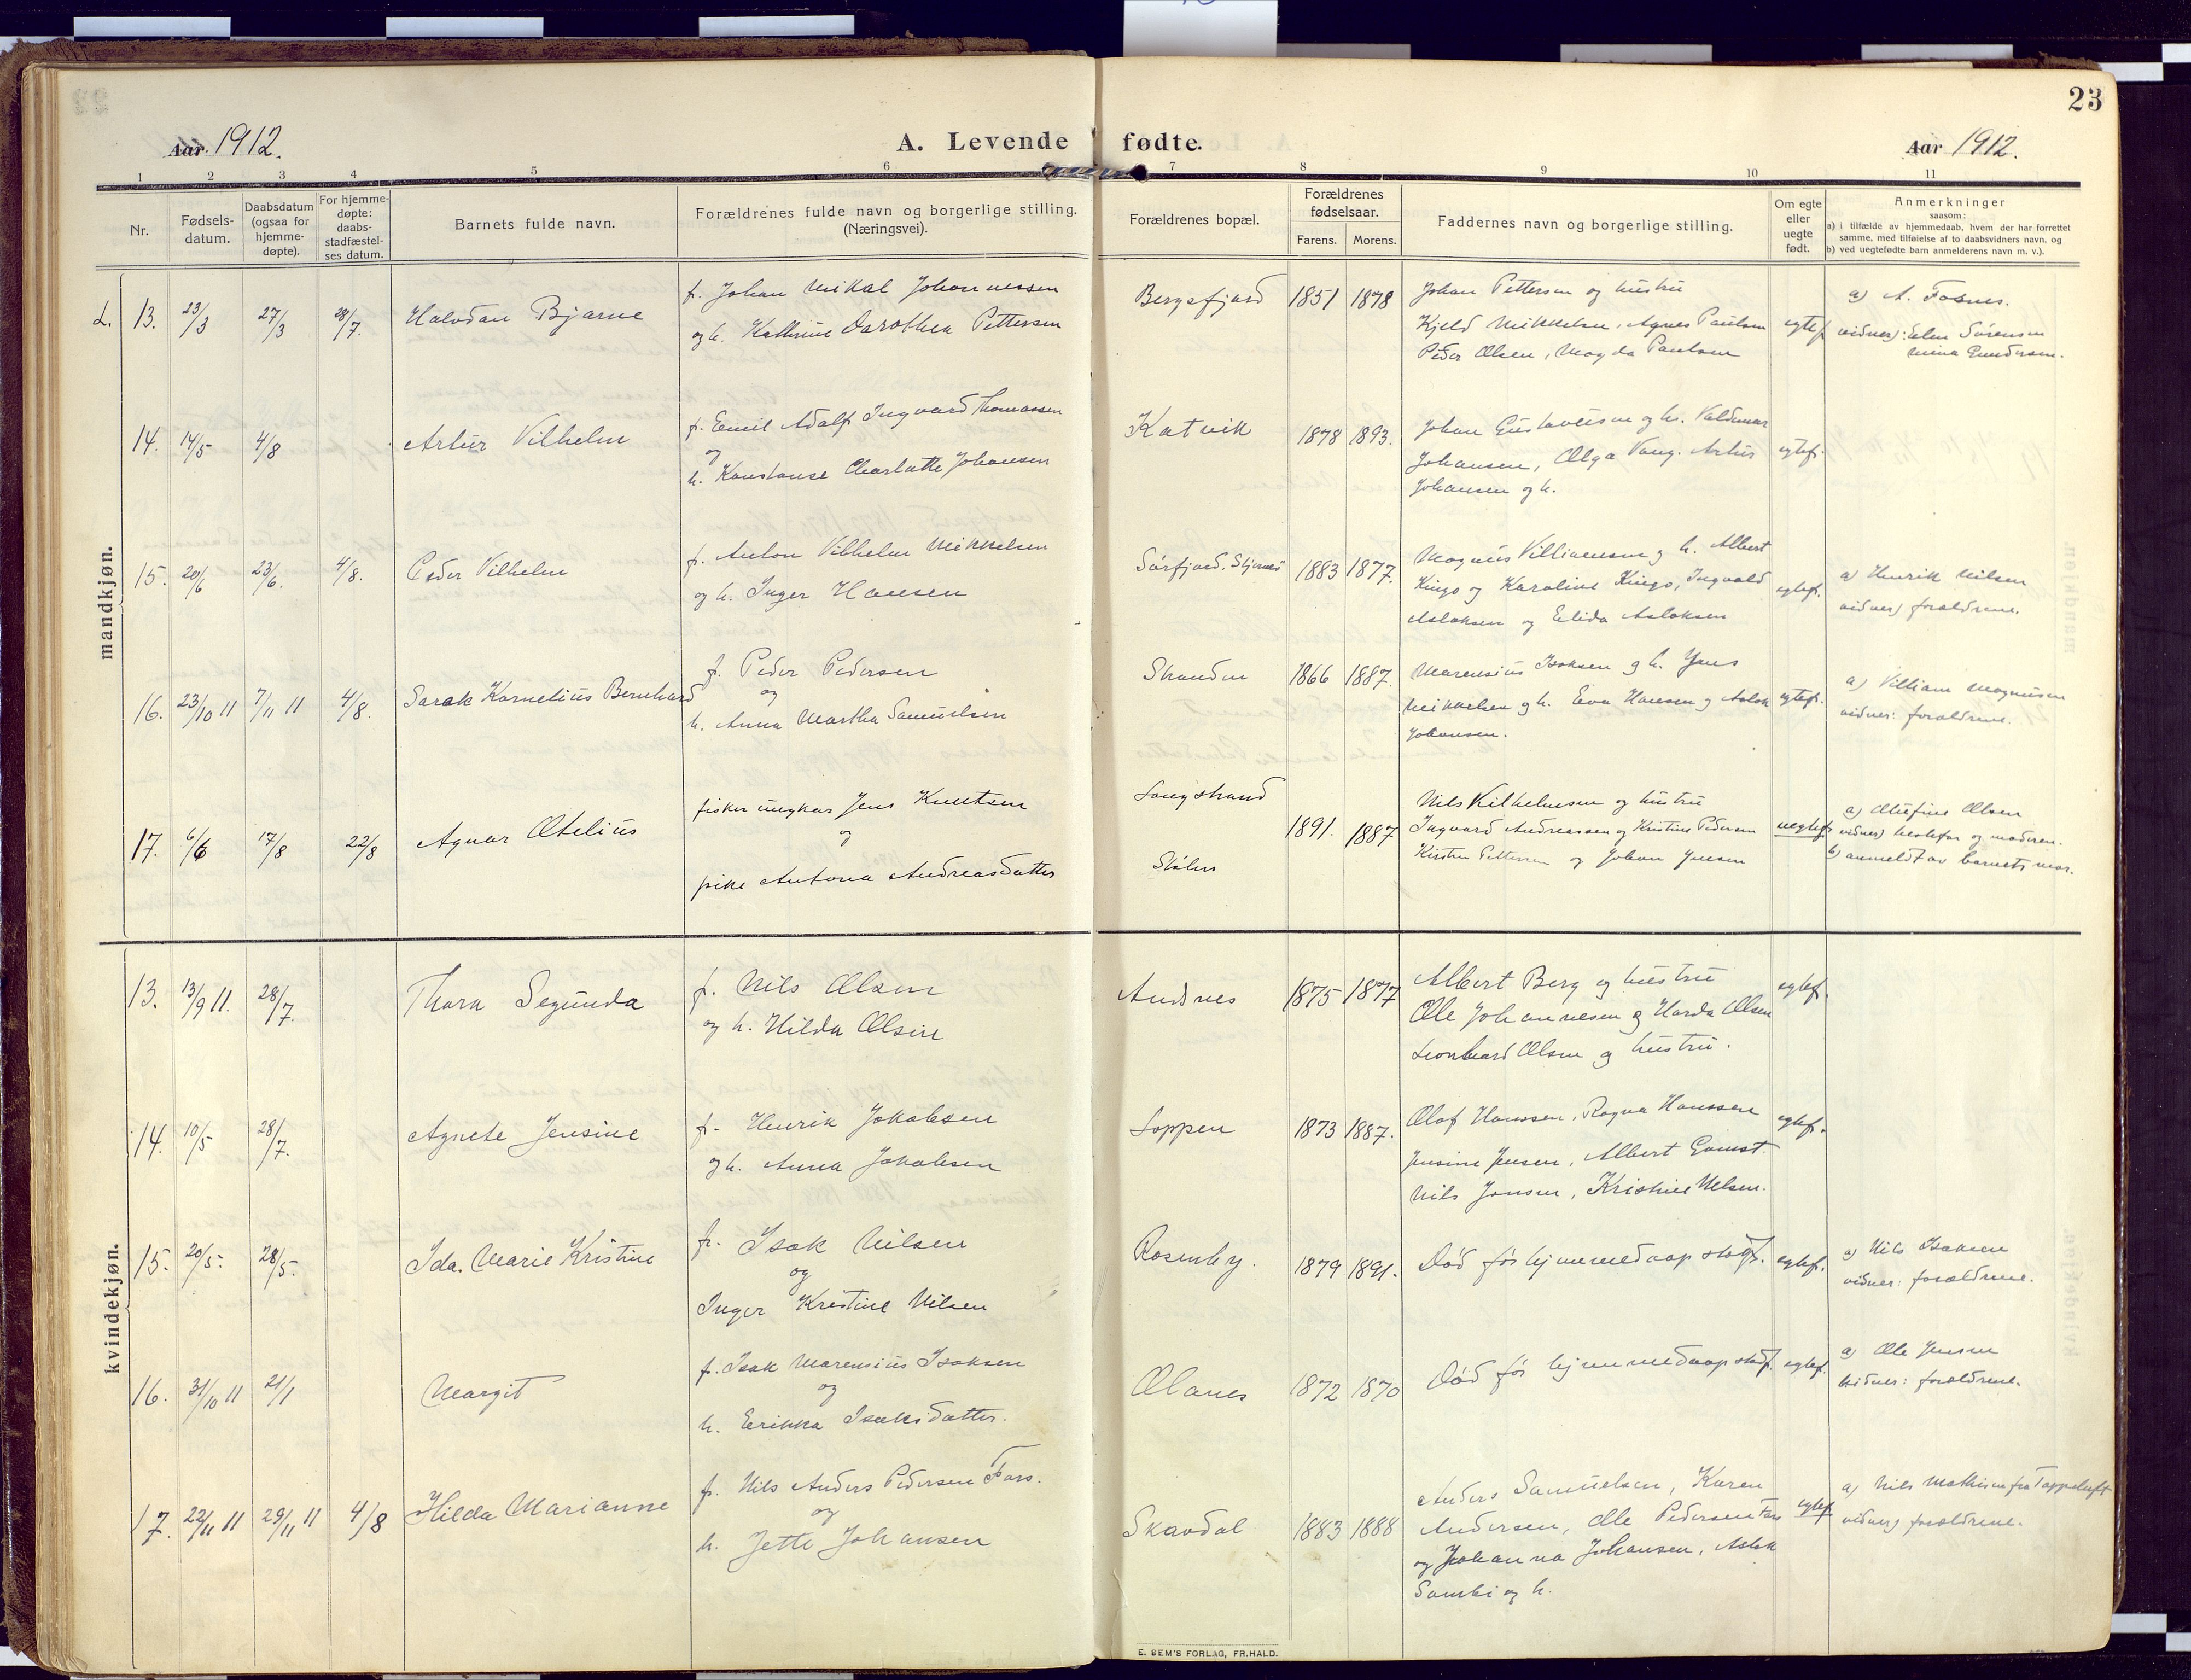 23
Aar 1912.
A. Levende fødte.
Aar 1912.
1 2 3 4 5 6 7 8 9 10 11
Nr.
Fødsels-
datum.
Daabsdatum
(ogsaa for
hjemme-
døpte).
For hjemme-
døpte:
daabs-
stadfæstel-
ses datum.
Barnets fulde navn.
Forældrenes fulde navn og borgerlige stilling.
(Næringsvei).
Forældrenes bopæl.
Forældrenes
fødselsaar.
Farens. Morens.
Faddernes navn og borgerlige stilling.
Om egte
eller
uegte
født.
Anmerkninger
saasom:
a) i tilfælde av hjemmedaab, hvem der har forrettet
samme, med tilføielse af to daabsvidners navn, og
b) ved uegtefødte barn anmelderens navn m. v.).
mandkjøn.
L. 13. 23/3 27/3 28/7. Halvdan Bjarne
f. Johan Mikal Johannessen
og h. Kathrine Dorothea Pettersen
Bergsfjord 1851 1878
Johan Pettersen og hustru
Kjeld Mikkelsen, Agnes Paulsen
Peder Olsen, Magda Paulsen
egtef
a) A. Fosnes.
vidner: Elen Sørensen
Mina Gundersen.
14. 14/5 4/8 Artur Vilhelm
f. Emil Adolf Ingvard Thomassen
og
h. Konstanse Charlotte Johansen
Katvik 1878 1893.
Johan Gustavsen og h. Valdemar
Johansen, Olga Vang. Artur
Johansen og h.
egtef.
15. 20/6 23/6. 4/8. Peder Vilhelm
f. Anton Vilhelm Mikkelsen
og h. Inger Hansen
Sørfjord, Stjernø 1883 1877.
Magnus Villiamsen og h. Albert
Kings og Karoline Kings, Ingvald
Aslaksen og Elida Aslaksen
egtef.
a) Henrik Nilsen
vidner) forældrene.
16. 23/10 11 7/11 11 4/8. Sarak Kornelius Bernhard
f. Peder Pedersen
og
h. Anna Martha Samuelsen
Stranden 1866 1887.
Marensius Isaksen og h. Jens
Mikkelsen og h. Eva Hansen og Aslak
Johansen.
egtef.
a) Villiam Magnusen
vidner: forældrene.
17. 6/6 17/8 22/8 Agnar Otelius
fisker ungkar Jens Knutsen
og
pike Antona Andreasdatter
Langstrand
Skålen
1891. 1887
Nils Vilhelmsen og hustru
Ingvard Andreassen og Kristine Pedersen
Kirsten Pettersen og Johan Jensen
uegtef
a) Olufine Olsen
vidner) bestefar og moderen.
b) anmeldt av barnets mor.
kvindekjøn.
13. 13/9 11. 28/7. Thora Segunda
f. Nils Olsen
og h. Hilda Olsen
Andsnes 1875 1877
Albert Berg og hustru
Ole Johannesen og Harda Olsen
Leonhard Olsen og hustru.
egtef.
14. 10/5 28/7. Agnete Jensine
f. Henrik Jakobsen
og h. Anna Jakobsen
Loppen 1873 1887.
Olaf Hanssen, Ragna Hanssen
Jensine Jensen, Albert Gamst.
Nils Jensen, Kristine Nilsen.
egtef.
15. 20/5. 28/5. Ida Marie Kristine
f. Isak Nilsen
og
Inger Kristine Nilsen
Rosenby. 1879 1891.
Død før hjemmedaap stadf. egtef.
a) Nils Isaksen
vidner: forældrene.
16. 31/10 11 21/1 Margit
f. Isak Marensius Isaksen
og
h. Erikka Isaksdatter.
Olanes 1872 1870
Død før hjemmedaap stadf. egtef.
a) Ole Jensen
vidner: forældrene.
17. 22/11 11 29/11 11 4/8 Hilda Marianne
f. Nils Anders Pedersen Fors.
og
h. Jette Johansen
Skavdal 1883 1888
Anders Samuelsen, Karen
Andersen, Ole Pedersen Fors
og Johanna Johansen, Aslak
Sambi og h.
egtef
a) Nils Mathisen fra Tappeluft
vidner) forældrene.
E. SEM'S FORLAG, FR.HALD.